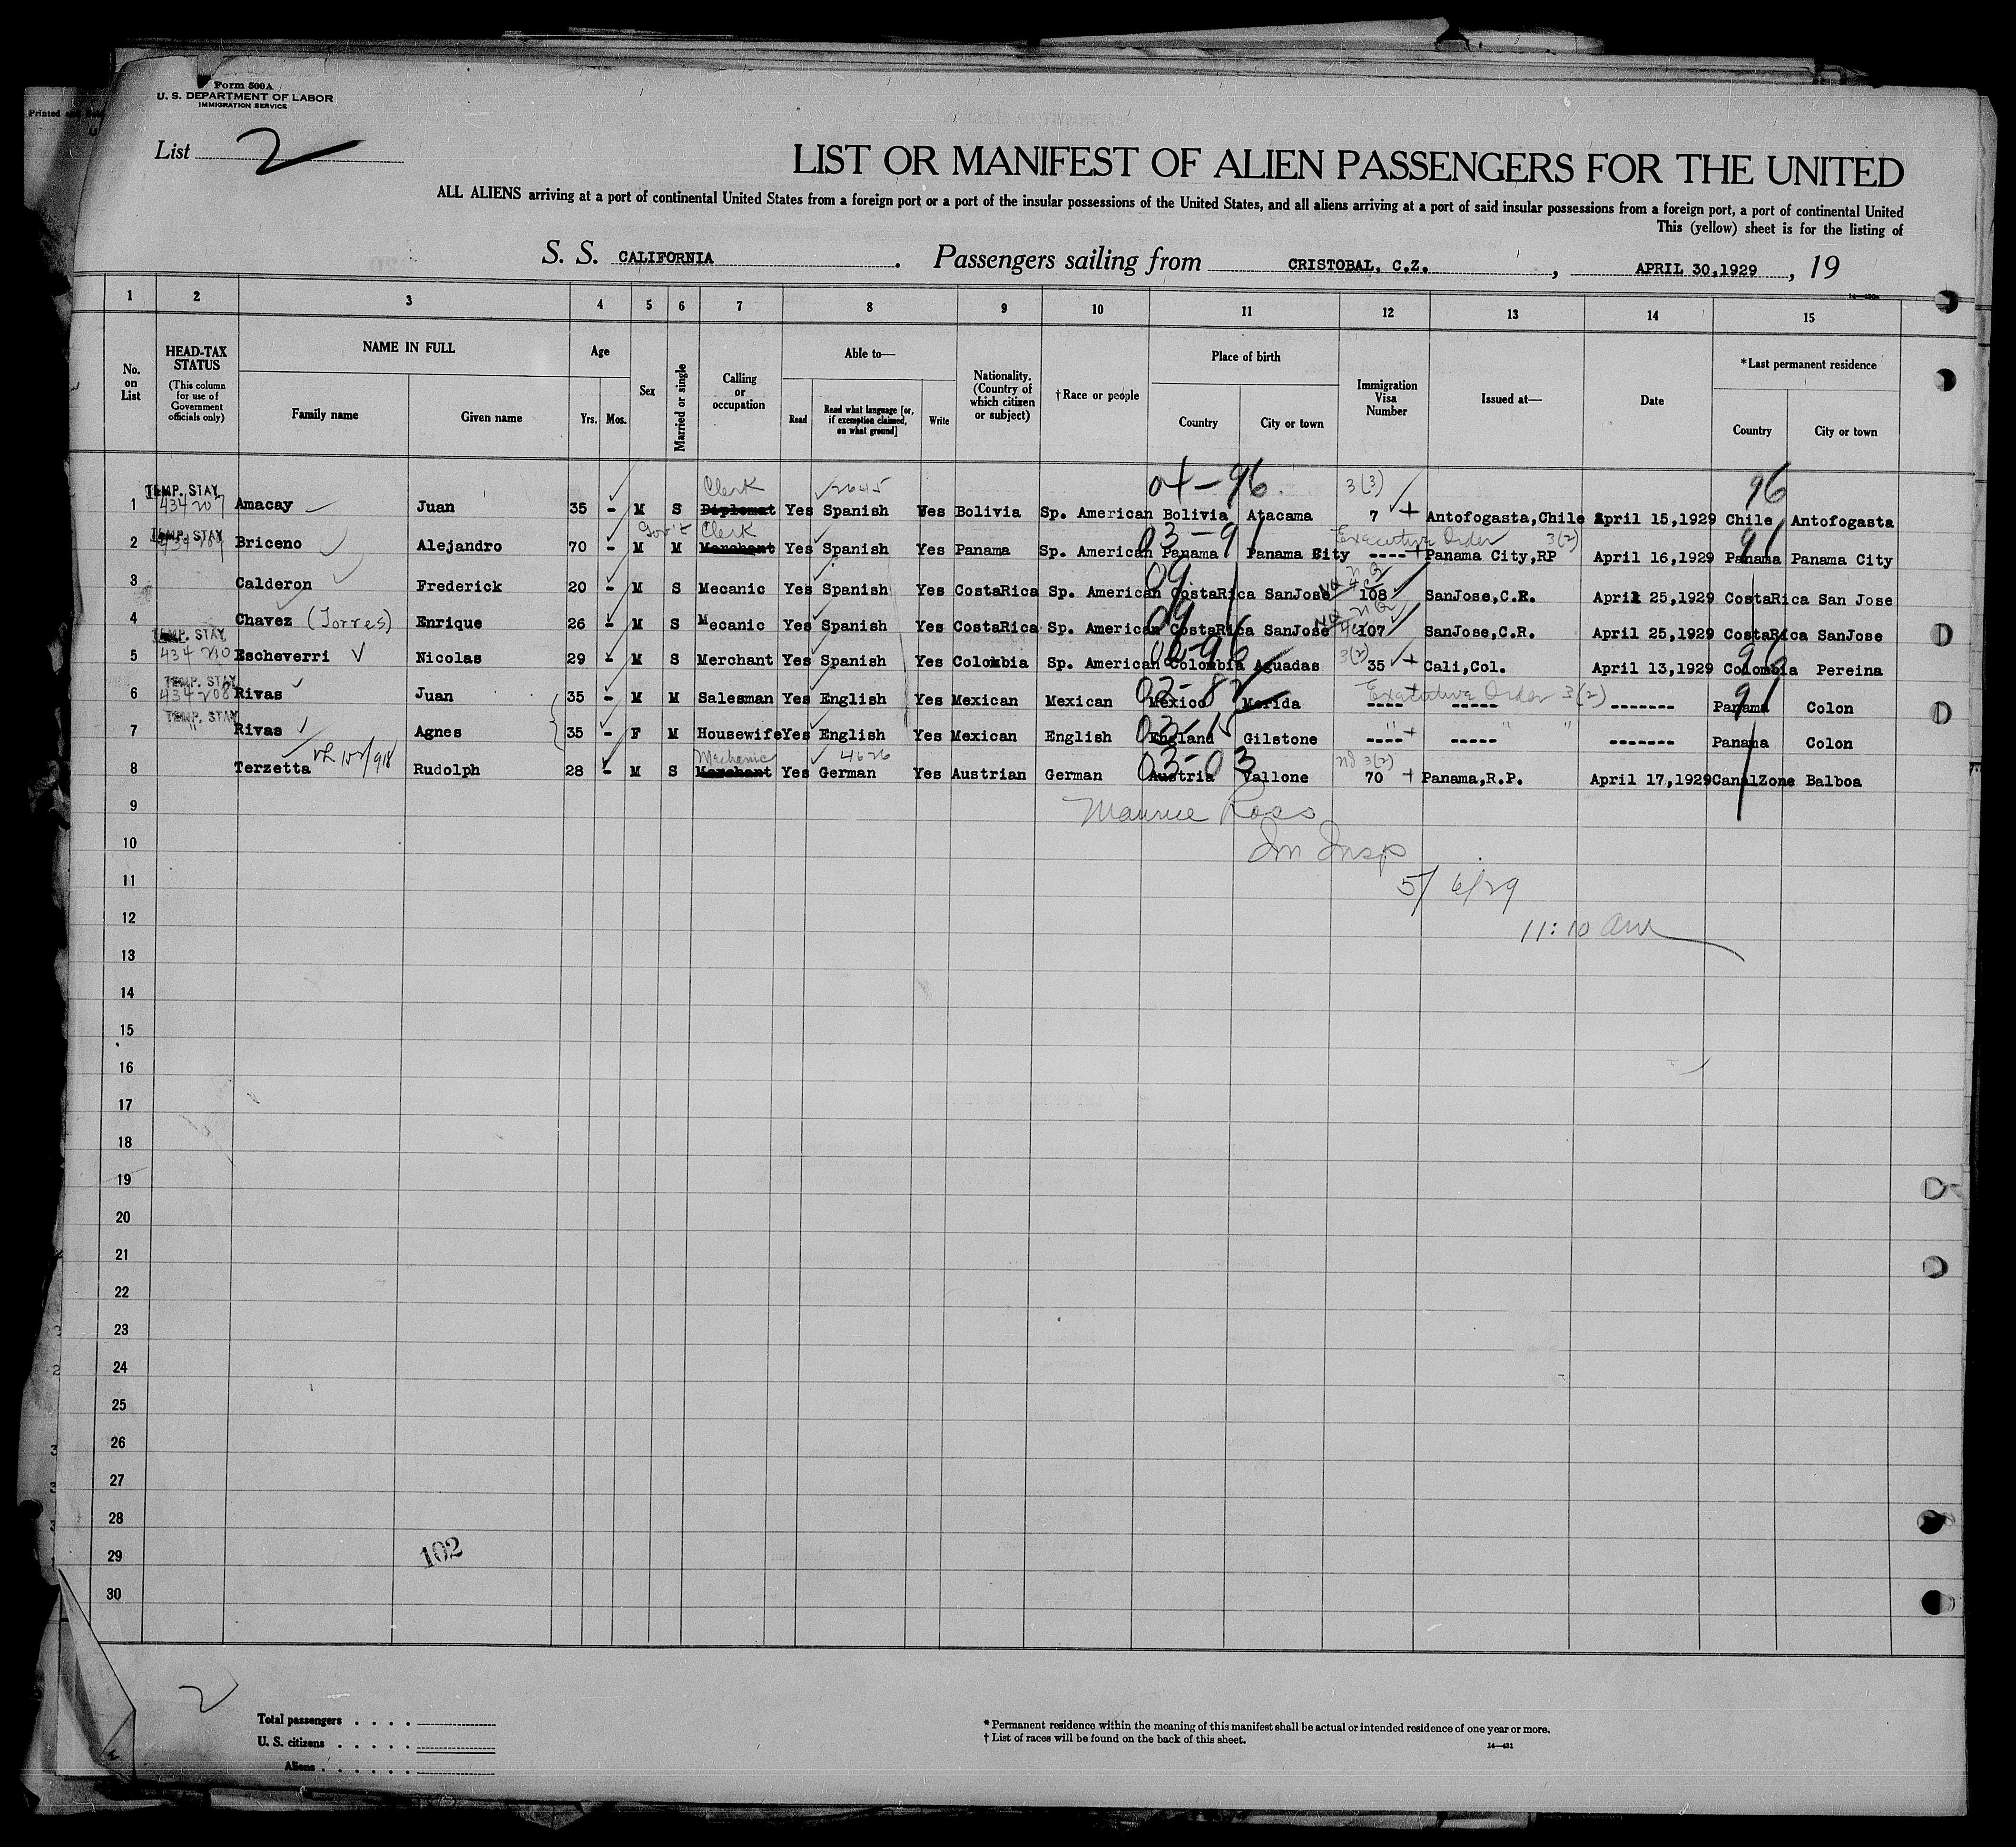 Form 500A
U. S. DEPARTMENT OF LABOR
IMMIGRATION SERVICE
Printed
List 2
LIST OR MANIFEST OF ALIEN PASSENGERS FOR THE UNITED
ALL ALIENS arriving at a port of continental United States from a foreign port or a port of the insular possessions of the United States, and all aliens arriving at a port of said insular possessions from a foreign port, a port of continental United
This (yellow) sheet is for the listing of
S. S. CALIFORNIA. Passengers sailing from CRISTOBAL, C.Z., APRIL 30,1929, 19
1 2 3 4 5 6 7 8 9 10 11 12 13 14 15
No. on List
HEAD-TAX STATUS (This column for use of Government officials only)
NAME IN FULL
Family name Given name
Age
Yrs. Mos.
Sex
Married or single
Calling or occupation
Able to—
Read Read what language [or, if exemption claimed, on what ground] Write
Nationality. (Country of which citizen or subject)
†Race or people
Place of birth
Country City or town
Immigration Visa Number
Issued at—
Date
*Last permanent residence
Country City or town
TEMP. STAY Clerk 2645 04-96 3(3) 96
1 434207 Amacay Juan 35 - M S Diplomat Yes Spanish Yes Bolivia Sp. American Bolivia Atacama 7 + Antofogasta,Chile April 15,1929 Chile Antofogasta
TEMP. STAY Gov't Clerk 03-91 Executive Order 3(2) 91
2 Briceno Alejandro 70 - M M Merchant Yes Spanish Yes Panama Sp. American Panama Panama City ---- + Panama City,RP April 16,1929 Panama Panama City
09 NQ
3 Calderon Frederick 20 - M S Mecanic Yes Spanish Yes CostaRica Sp. American CostaRica SanJose 108 SanJose,C.R. April 25,1929 CostaRica San Jose
09 NQ
4 Chavez (Torres) Enrique 26 - M S Mecanic Yes Spanish Yes CostaRica Sp. American CostaRica SanJose 107 SanJose,C.R. April 25,1929 CostaRica SanJose
TEMP. STAY 96 3(2) 96
5 434210 Escheverri Nicolas 29 - M S Merchant Yes Spanish Yes Colombia Sp. American Colombia Aguadas 35 + Cali,Col. April 13,1929 Colombia Pereina
TEMP. STAY Executive Order 3(2) 91
6 434208 Rivas Juan 35 - M M Salesman Yes English Yes Mexican Mexican Mexico Merida ---- ----- ------- Panama Colon
TEMP. STAY 03-15 " " "
7 " Rivas Agnes 35 - F M Housewife Yes English Yes Mexican English England Gilstone ---- + ----- ------- Panama Colon
Mechanic 4626 03-03 3(2)
8 Terzetta Rudolph 28 - M S Merchant Yes German Yes Austrian German Austria Vallone 70 + Panama,R.P. April 17,1929 CanalZone Balboa
9
Maurice Ross
10
Im Insp
11
5/6/29
12
11:10 am
13
14
15
16
17
18
19
20
21
22
23
24
25
26
27
28
29
102
30
2
Total passengers . . . .
U. S. citizens . . . . .
Aliens . . . . . .
* Permanent residence within the meaning of this manifest shall be actual or intended residence of one year or more.
† List of races will be found on the back of this sheet.
14—431